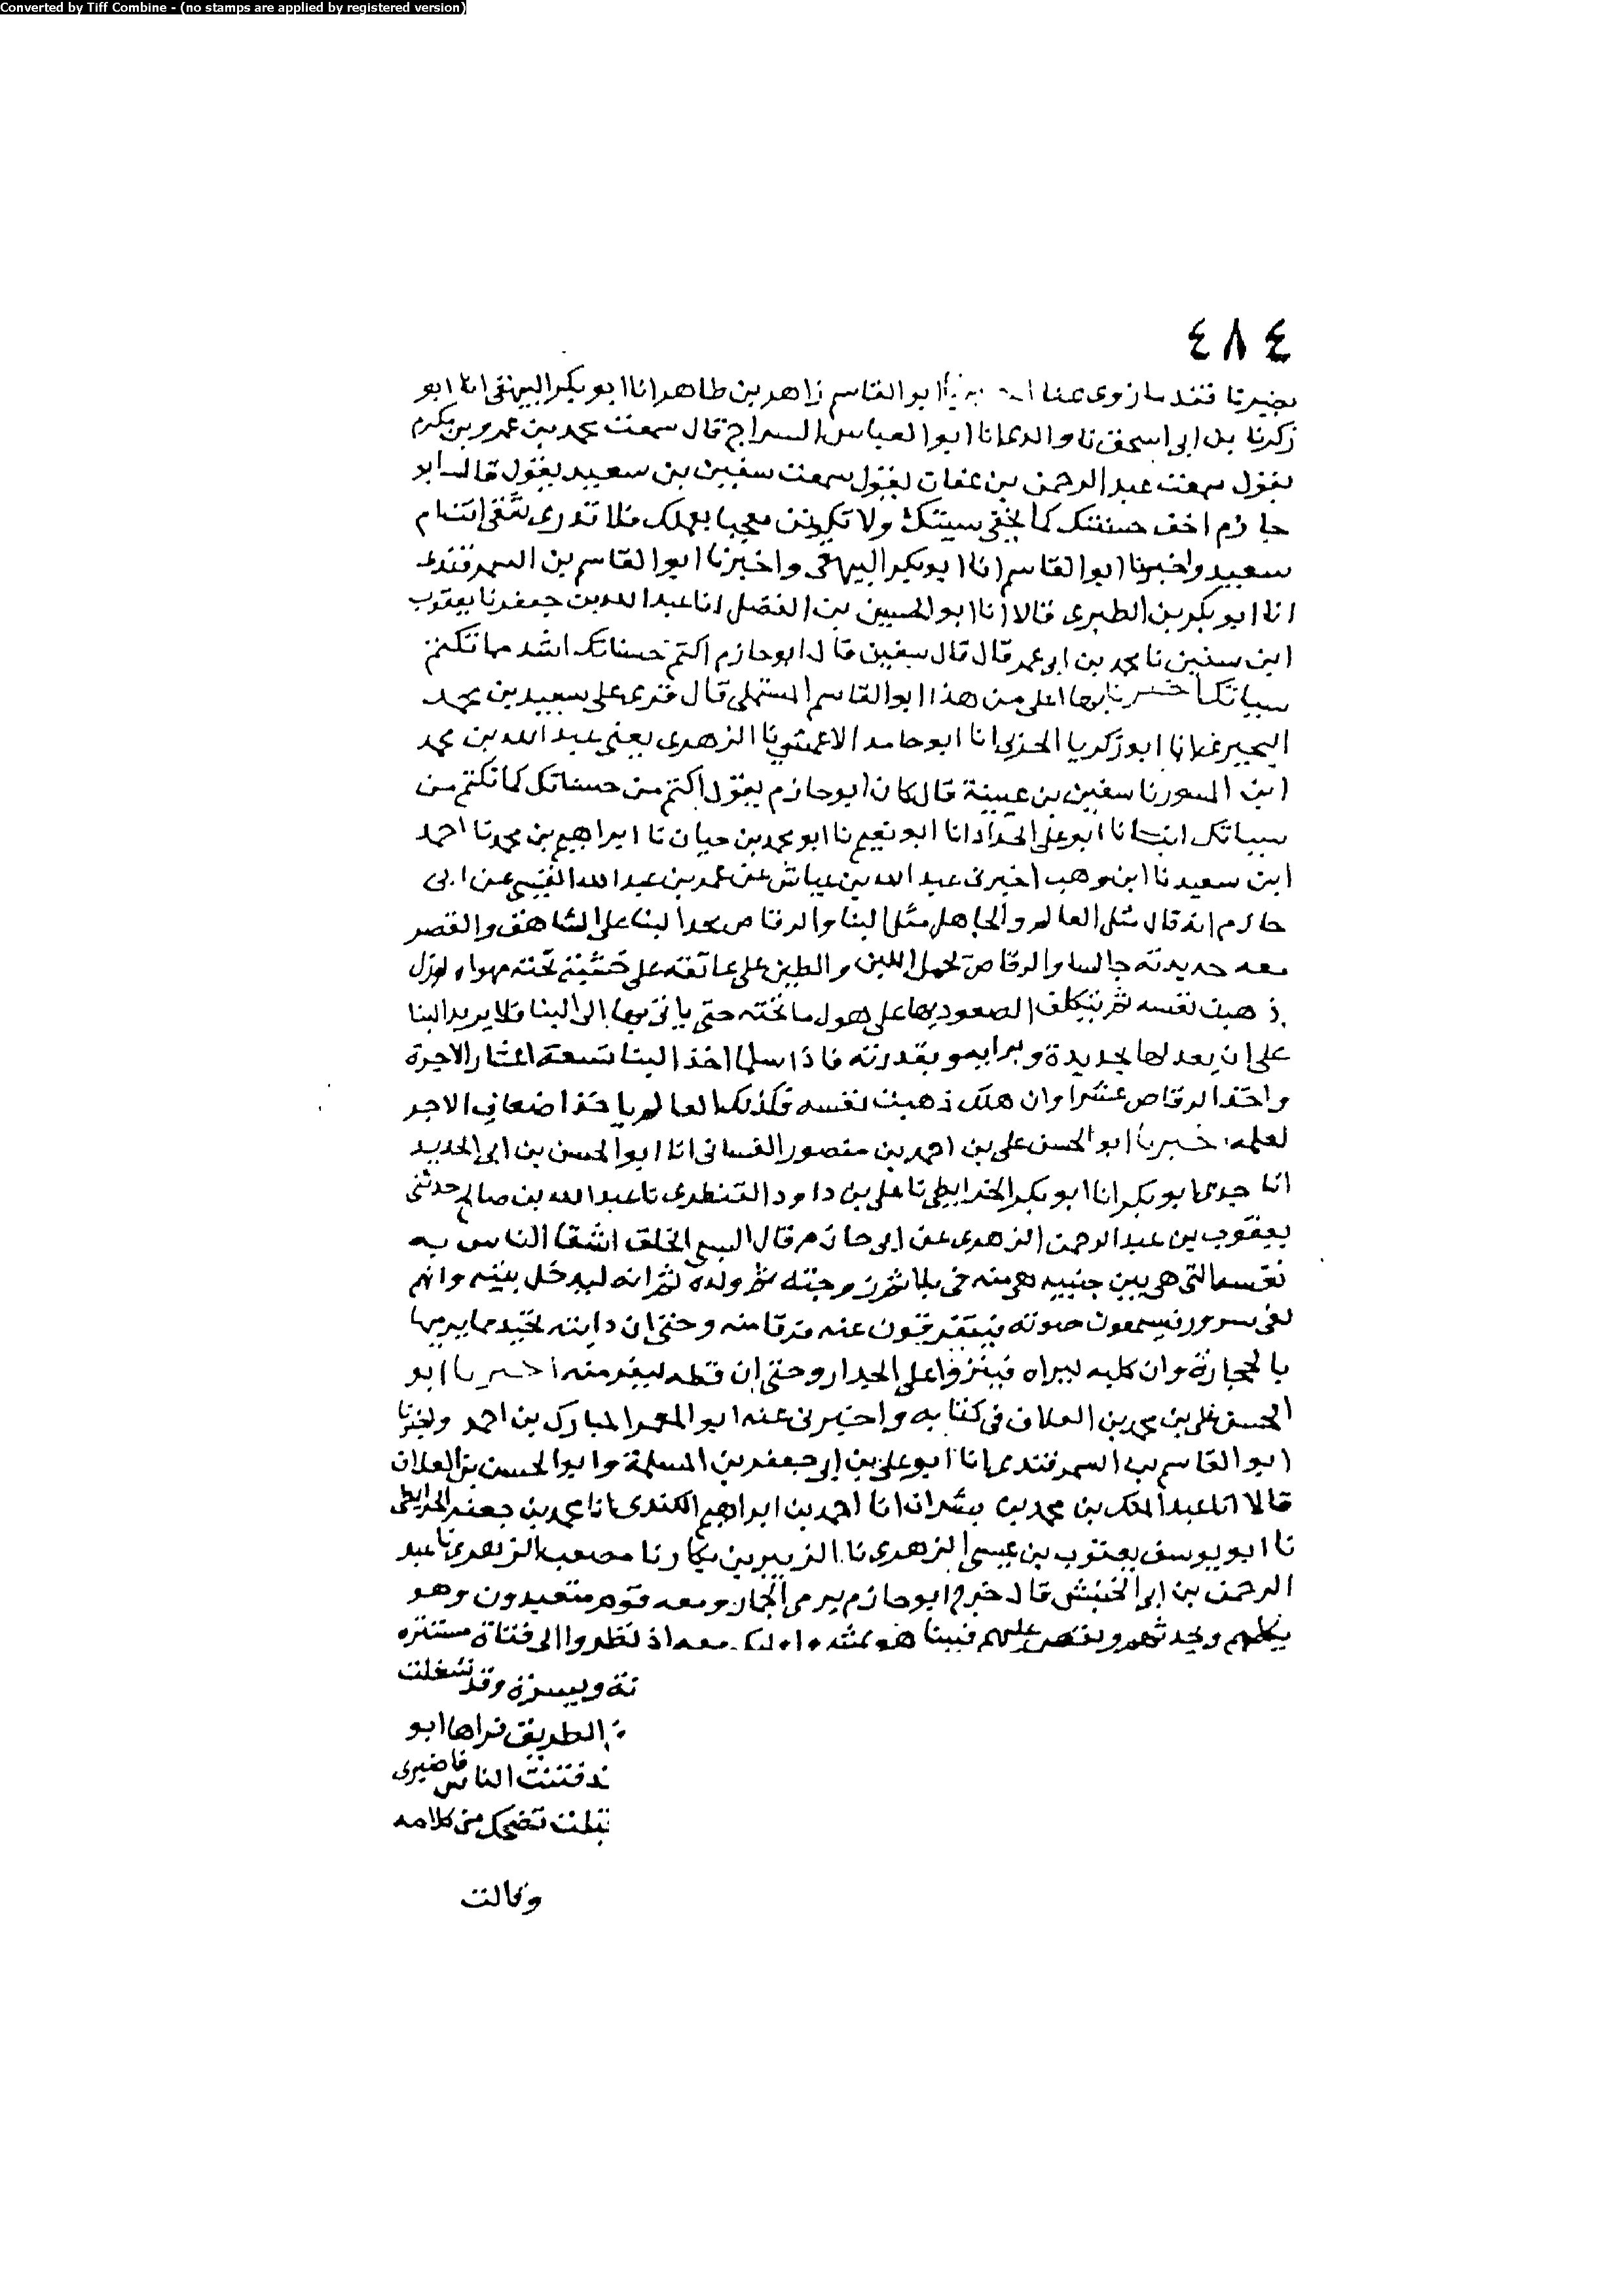 Converted by Tiff Combine - (no stamps are applied by registered version)
٤٨٤
يضيرنا فقد ما زوى عنا ابو القاسم زاهر بن طاهر انا ابو بكر البيهقى انا ابو
زكريا بن ابى اسحق نا والدى انا ابو العباس السراج قال سمعت محمد بن عمرو بن مكرم
يقول سمعت عبد الرحمن بن عفان يقول سمعت سفين بن سعيد يقول قال ابو
حازم اخف حسنتك كما تخفى سيئتك ولا تكونن معجبا بعملك فلا تدرى شقى انت ام
سعيد واخبرنا ابو القاسم انا ابو بكر البيهقى واخبرنا ابو القاسم بن السمرقندى
انا ابو بكر بن الطبرى قالا انا ابو الحسين بن الفضل انا عبد الله بن جعفر نا يعقوب
ابن سفين نا محمد بن ابى عمر قال قال سفين قال ابو حازم اكتم حسناتك اشد مما تكتم
سياتك اخبرنا بها اعلى من هذا ابو القاسم المستملى قال قرى على سعيد بن محمد
البحيرى انا ابو زكريا الحربى انا ابو حامد الاعمشى نا الزهرى يعنى عبد الله بن محمد
ابن المسور نا سفين بن عيينة قال كان ابو حازم يقول اكتم من حسناتك كما تكتم من
سياتك انبانا ابو على الحداد انا ابو نعيم نا ابو محمد بن حيان نا ابراهيم بن محمد نا احمد
ابن سعيد نا ابن وهب اخبرنى عبد الله بن عياش عن عمر بن عبد الله القيسى عن ابى
حازم انه قال مثل العالم والجاهل مثل البنا والرقاص تجد البنا على الشاهق والقصر
معه حديدته جالسا والرقاص يحمل اللبن والطين على عاتقه على خشبة تحته مهواه لو زل
ذهبت نفسه ثم يتكلف الصعود بها على هول ما تحته حتى ياتى بها الى البنا فلا يريد البنا
على ان يعدلها بحديدة وبرايه وبقدرته فاذا سلما اخذ البنا تسعة اعشار الاجرة
واخذ الرقاص عشرا وان هلك ذهبت نفسه فكذلك العالم ياخذ اضعاف الاجر
لعلمه اخبرنا ابو الحسن على بن احمد بن منصور الغسانى انا ابو الحسن بن ابى الحديد
انا جدى ابو بكر انا ابو بكر الخرايطى نا على بن داود القنطرى نا عبد الله بن صالح حدثنى
يعقوب بن عبد الرحمن الزهرى عن ابى حازم قال السيى الخلق اشقا الناس به
نفسه التى هى بين جنبيه هى منه فى بلا ثم زوجته ثم ولده ثم انه ليدخل بيته وانهم
لفى سرور فيسمعون صوته فيتفرقون عنه فرقا منه وحتى ان دابته تحيد مما يرميها
بالحجارة وان كلبه ليراه فينزوا على الجدار وحتى ان قطه ليفر منه اخبرنا ابو
الحسن على بن محمد بن العلاف فى كتابه واخبرنى عنه ابو المعمر المبارك بن احمد واخبرنا
ابو القاسم بن السمرقندى انا ابو على بن ابى جعفر بن المسلمة وابو الحسن بن العلاف
قالا انا عبد الملك بن محمد بن بشران انا احمد بن ابراهيم الكندى انا محمد بن جعفر الخرايطى
نا ابو يوسف يعقوب بن عيسى الزهرى نا الزبير بن بكار نا مصعب الزهرى نا عبد
الرحمن بن ابى الحنبش قال خرج ابو حازم يرمى الجمار ومعه قوم متعبدون وهو
يكلمهم ويحدثهم ويقص عليهم فبينا هو يمشى معه اذ نظروا الى فتاة مستترة
نة ويسرة وقد شغلت
الطريق فراها ابو
فتنت الناس فاضربى
تضحك من كلامه
وقالت